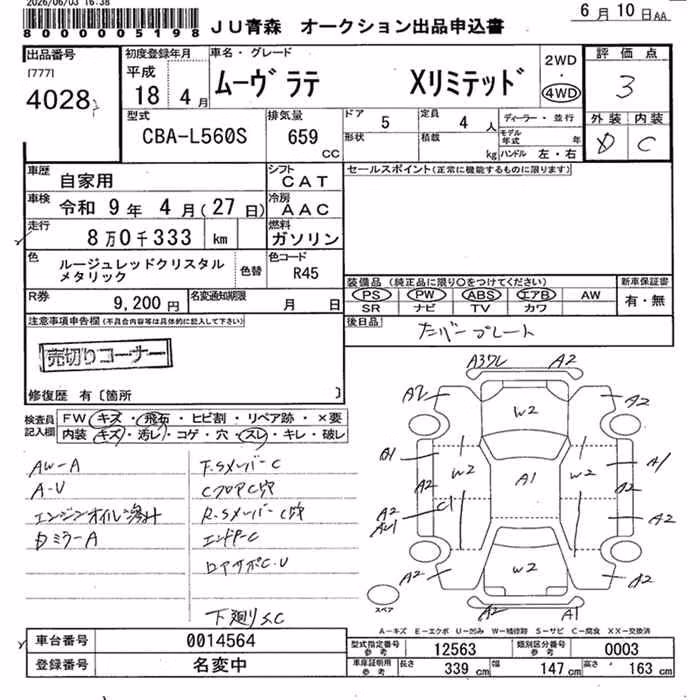 2026/06/03 16:38
8000005198
JU青森 オークション出品申込書
6月10日AA
出品番号
[777]
4028
初度登録年月
平成
18 4月
車名・グレード
ムーヴラテ Xリミテッド
2WD
・
4WD
評価点
3
外装 内装
D C
型式
CBA-L560S
排気量
659
CC
ドア
5
定員
4人
形状
積載
kg
ディーラー・並行
モデル年式 年
ハンドル 左・右
車歴
自家用
シフト
CAT
車検
令和 9年 4月(27日)
冷房
AAC
走行
8万0千333 km
燃料
ガソリン
色
ルージュレッドクリスタル
メタリック
色替
色コード
R45
セールスポイント(正常に機能するものに限ります)
装備品(純正品に限り○をつけてください)
PS PW ABS エアB AW
SR ナビ TV カワ
新車保証書
有・無
R券
9,200円
名変通知期限
月 日
後日品
ナンバープレート
注意事項申告欄(不具合内容等は具体的に記入して下さい)
売切りコーナー
修復歴 有〔箇所 〕
検査員
記入欄
FW キズ・飛石・ヒビ割・リペア跡・×要
内装 キズ・汚レ・コゲ・穴・スレ・キレ・破レ
AW-A
A-U
エンジンオイル滲み
Dミラー A
F.SメンバーC
CフロアC穴
R.SメンバーC穴
エンドP-C
ロアサポC.U
下廻りS.C
A3ワレ A2
A2 W2 A2
B1 W2 A1 W2 A1
A2 A2
A2 C1 A2
A2 W2 A2
A2 A1
スペア
A-キズ E-エクボ U-凹み W-補修跡 S-サビ C-腐食 XX-交換済
車台番号
0014564
登録番号
名変中
型式指定番号
参考
12563
類別区分番号
参考
0003
車庫証明用
参考
長さ 339cm 幅 147cm 高さ 163cm